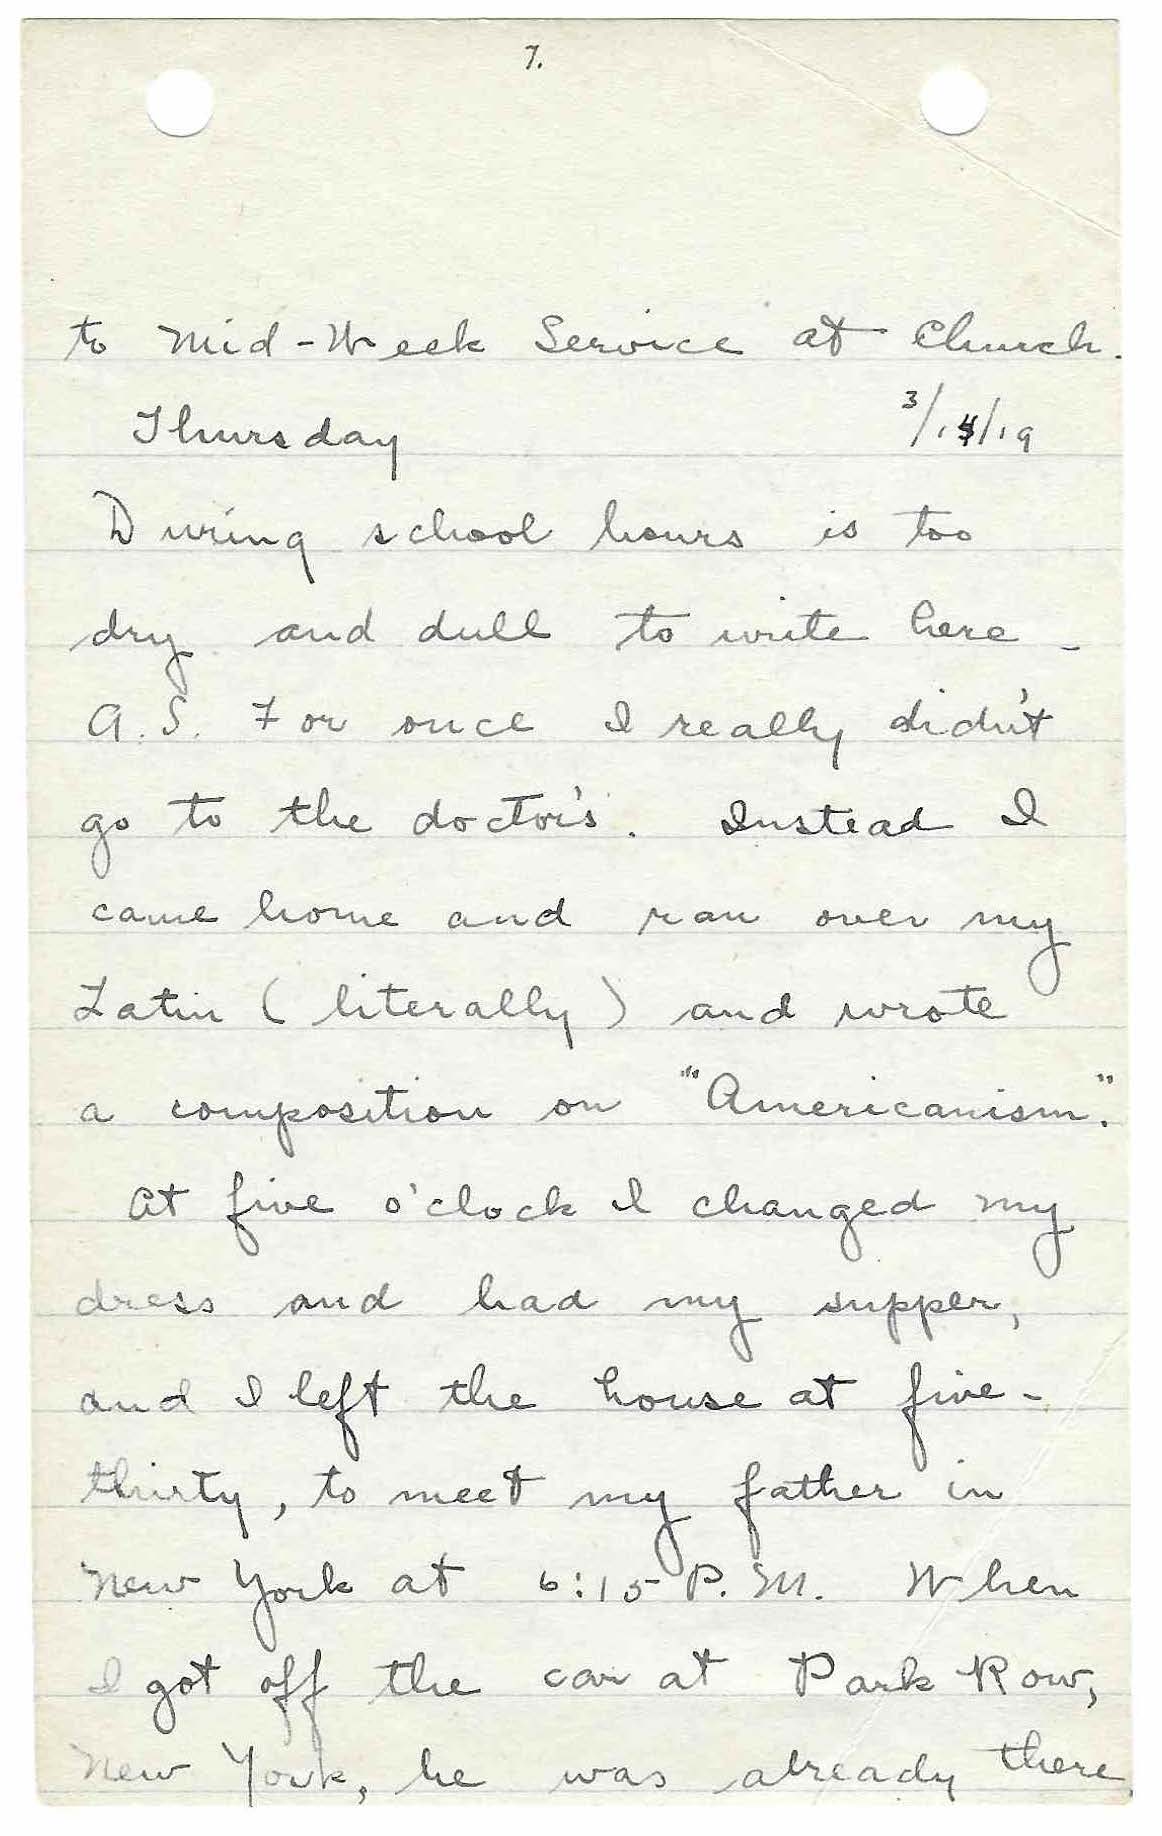 7.
to Mid-Week Service at Church.
Thursday 3/14/19
During school hours is too
dry and dull to write here.
A.S. For once I really didn't
go to the doctor's. Instead I
came home and ran over my
Latin (literally) and wrote
a composition on "Americanism."
At five o'clock I changed my
dress and had my supper,
and I left the house at five-
thirty, to meet my father in
New York at 6:15 P.M. When
I got off the car at Park Row,
New York, he was already there.